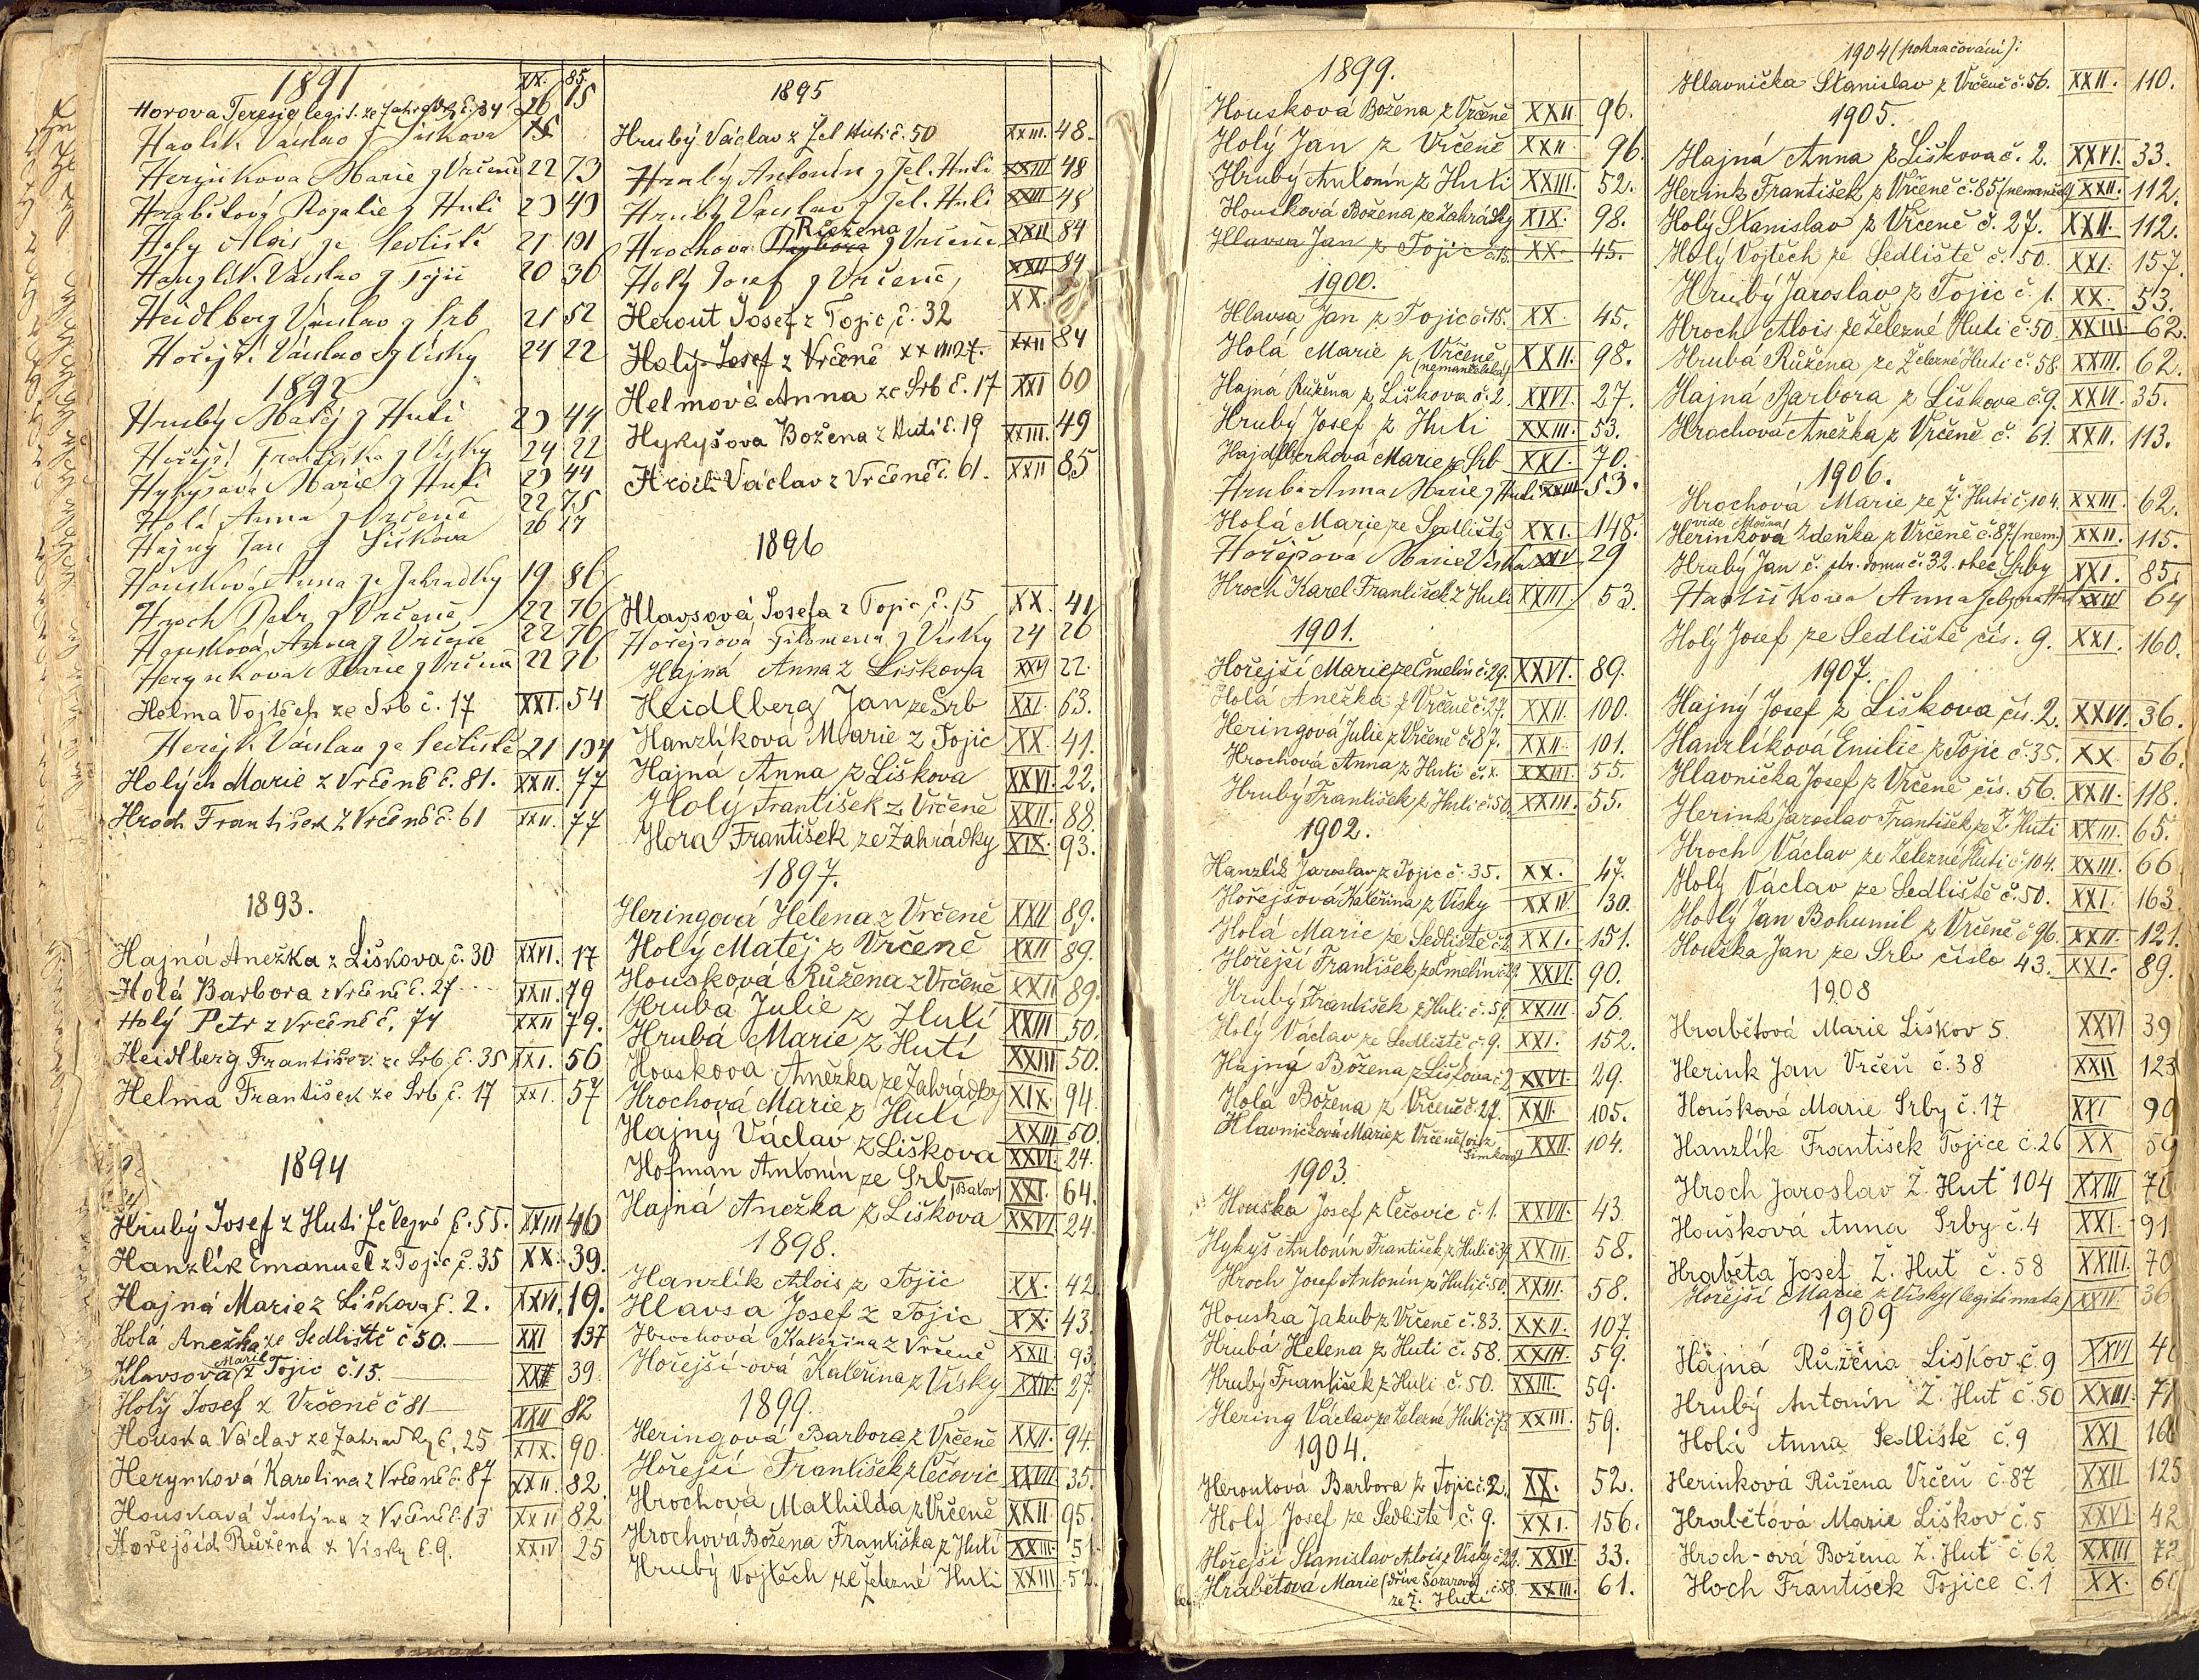 1891
Horova Terezie legit. ze Zahrádky č. 34 XX. 85.
26 15
Havlík Václav z Liškova
Herynkova Marie z Vrčeně 22 73
Hrabětová Rozalie z Huti 23 43
Holý Alois ze Sedliště 21 191
Hanzlík Václav z Tojic 20 36
Heidlberg Václav z Srb 21 52
Hořejší Václav z Vísky 24 22
1892
Hrubý Matěj z Huti 23 44
Hořejší Františka z Vísky 24 22
Hykyšová Marie z Huti 23 44
Holá Anna z Vrčeně 22 75
Hajný Jan z Liškova 26 17
Housková Anna ze Zahrádky 19 86
Hroch Petr z Vrčeně 22 76
Housková Anna z Vrčeně 22 76
Herynkova Marie z Vrčeně 22 76
Helma Vojtěch ze Srb č. 17 XXI. 54
Václav ze Sedliště 21 194
Holých Marie z Vrčeně č. 81. XXII. 77
Hroch František z Vrčeně č. 61 XXII. 77
1893.
Hajná Anežka z Liškova, č. 30 XXVI. 17
Holá Barbora z Vrčeně č. 27 XXII. 79
Holý Petr z Vrčeně č. 74 XXII 79.
Heidlberg František ze Srb č. 35 XXI. 56
Helma František ze Srb č. 17 XXI. 57
1894
Hrubý Josef z Huti Železné č. 55. XXIII 46
Hanzlík Emanuel z Tojic, č. 35 XX. 39.
Hajná Marie z Liškova č. 2. XXVI. 19.
Holá Anežka ze Sedliště č 50. XXI 137
Hlavsová Marie z Tojic č. 15. 39
Holý Josef z Vrčeně č 81 XXII 82
Houska Václav ze Zahrádky č. 25 XIX. 90
Herynková Karolina z Vrčeně č. 87 XXII. 82.
Houskavá Justýna z Vrčeně č. 13 XXII 82
Růžena z Vísky č. 9. XXIV 25
1895
Hrubý Václav z Žel Huti č. 50 XXIII. 48.
Hrubý Antonín z Žel. Huti XXIII 48
Hrubý Václav z Žel. Huti XXIII 48
Růžena
Hrochova Barbora z Vrčeně XXII 84
Holý Josef z Vrčeně XXII 84
Herout Josef z Tojic, č. 32 XX.
Holý Josef z Vrčeně XXII 84
Helmová Anna ze Srb č. 17 XXI 60
Hykyšova Božena z Huti č. 19 XXIII. 49
Hroch Václav z Vrčeně č. 61. XXII 85
1896
Hlavsová, Josefa z Tojic, č. 15 XX. 41
Hořejšová Filomena z Vísky 24 26
Hajná Anna z Liškova XXVI 22.
Heidlberg Jan ze Srb XXI. 63.
Hanzlíková Marie z Tojic XX. 41.
Hajná Anna z Liškova XXVI. 22.
Holý František z Vrčeně XXII. 88.
Hora František ze Zahrádky XIX. 93.
1897.
Heringová Helena z Vrčeně XXII 89.
Holý Matěj z Vrčeně XXII 89.
Housková Růžena z Vrčeně XXII 89.
Hrubá Julie z Huti XXIII 50.
Hrubá Marie z Huti XXIII 50.
Housková Anežka ze Zahrádky XIX. 94.
Hrochová Marie z Huti XXIII 50.
Hajný Václav z Liškova XXVI. 24.
Hofman Antonín ze Srb XXI. 64.
Hajná Anežka z Liškova XXVI. 24.
1898.
Hanzlík Alois z Tojic XX. 42
Hlavsa Josef z Tojic XX. 43.
Hrochová Kateřina z Vrčeně XXII. 93
Hořejší-ová Kateřina z Vísky XXIV. 27.
1899.
Heringová Barbora z Vrčeně XXII. 94.
Hořejší František z Čečovic XXVII. 35.
Hrochová Mathilda z Vrčeně XXII 95.
Hrochová Božena Františka z Huti XXIII. 51
Hrubý Vojtěch ze Železné Huti XXIII. 52.
1899.
Housková Božena z Vrčeně XXII 96.
Holý Jan z Vrčeně XXII. 96.
Hrubý Antonín z Huti XXIII. 52.
Housková Božena ze Zahrádky XIX. 98.
Hlavsa Jan z Tojic č. 15. XX. 45.
1900.
Hlavsa Jan z Tojic č. 15. XX. 45.
Holá Marie z Vrčeně (nemanželská) XXII. 98.
Hajná Růžena z Liškova č. 2. XXVI. 27.
Hrubý Josef z Huti XXIII. 53.
Hajdlberková Marie ze Srb XXI. 70.
Hrubá Anna Marie z Huti XXIII 53.
Holá Marie ze Sedliště XXI. 148.
Hořejšová Marie Víska XXIV 29
Hroch Karel František z Huti XXIII 53.
1901.
Hořejší Marie ze Čmelín č. 29. XXVI. 89.
Holá Anežka z Vrčeně č. 27. XXII. 100.
Heringová Julie z Vrčeně č. 87. XXII. 101.
Hrochová Anna z Huti č. XXIII. 55.
Hrubý František z Huti č. 50. XXIII. 55.
1902.
Hanzlík Jaroslav z Tojic č. 35. XX. 47.
Hořejšová Kateřina z Vísky XXIV. 130.
Holá Marie ze Sedliště č. XXI. 151.
Hořejší František ze Čmelín č. 29. XXVI. 90.
Hrubý František z Huti č. 59. XXIII. 56.
Holý Václav ze Sedliště č. 9. XXI. 152.
Hajná Božena z Liškova č. 2 XXVI. 29.
Holá Božena z Vrčeně č. 27. XXII. 105.
Hlavničková Marie z Vrčeně (viz Šimková) XXII. 104.
1903.
Houska Josef z Čečovic č. 1. XXVII. 43
Hykyš Antonín František z Huti č. XXIII. 58.
Hroch Josef Antonín z Huti č. 50. XXIII. 58.
Houska Jakub z Vrčeně č. 83. XXII. 107.
Hrubá Helena z Huti č. 58. XXIII. 59.
Hrubý František z Huti č. 50. XXIII. 59.
Hering Václav ze Železné Huti č. 73 XXIII. 59.
1904.
Heroutová Barbora z Tojic č. 2. XX. 52.
Holý Josef ze Sedliště č. 9. XXI. 156.
Hořejší Stanislav Alois z Vísky č. 29. XXIV. 33.
Hrabětová Marie (dříve Šorarová) č. 58. XXIII. 61.
ze Ž. Huti
1904 (pokračování):
Hlavnička Stanislav z Vrčeně č. 56. XXII. 110.
1905.
Hajná Anna z Liškova č. 2. XXVI. 33.
Herink František z Vrčeně č. 85 XXII. 112.
Holý Stanislav z Vrčeně č. 27. XXII. 112.
Holý Vojtěch ze Sedliště č. 50. XXI. 157.
Hrubý Jaroslav z Tojic č. 1. XX. 53.
Hroch Alois ze Železné Huti č. 50 XXIII 62.
Hrubá Růžena ze Železné Huti č. 58 XXIII. 62.
Hajná Barbora z Liškova č. 9. XXVI. 35.
Hrochová Anežka z Vrčeně č. 61. XXII. 113.
1906.
Hrochová Marie ze Ž. Huti č. 104. XXIII. 62.
vide Mošna)
Herinková Zdeňka z Vrčeně č. 87. (nem.) XXII. 115.
Hrubý Jan č. str. domu č. 32. obec Srby XXI. 85.
Anna 64
Holý Josef ze Sedliště čís. 9. XXI. 160.
1907.
Hajný Josef z Liškova čís. 2. XXVI. 36.
Hanzlíková Emilie z Tojic č. 35. XX. 56.
Hlavnička Josef z Vrčeně čís. 56. XXII. 118.
Herink Jaroslav František ze Ž. Huti XXIII. 65.
Hroch Václav ze Železné Huti č. 104. XXIII. 66
Holý Václav ze Sedliště č. 50. XXI. 163
Holý Jan Bohumil z Vrčeně č 96. XXII. 121.
Houska Jan ze Srb číslo 43. XXI. 89.
1908
Hrabětová Marie Liškov 5. XXVI 39
Herink Jan Vrčeň č. 38 XXII 123
Houšková Marie Srby č. 17 XXI 90
Hanzlík František Tojice č. 26 XX 59
Hroch Jaroslav Ž. Huť 104 XXIII 70
Houšková Anna Srby č. 4 XXI. 91
Hraběta Josef Ž. Huť č. 58 XXIII. 70
Hořejší Marie z Vísky (legitimata) XXIV. 36
1909
Hajná Růžena Liškov č. 9 XXVI
Hrubý Antonín Ž. Huť č. 50 XXIII. 71
Holá Anna Sedliště č. 9 XXI 166
Herinková Růžena Vrčeň č. 87 XXII 125
Hrabětová Marie Liškov č. 5 XXVI 42
Hroch-ová Božena Ž. Huť č. 62 XXIII 72
Hoch František Tojice č. 1 XX. 60